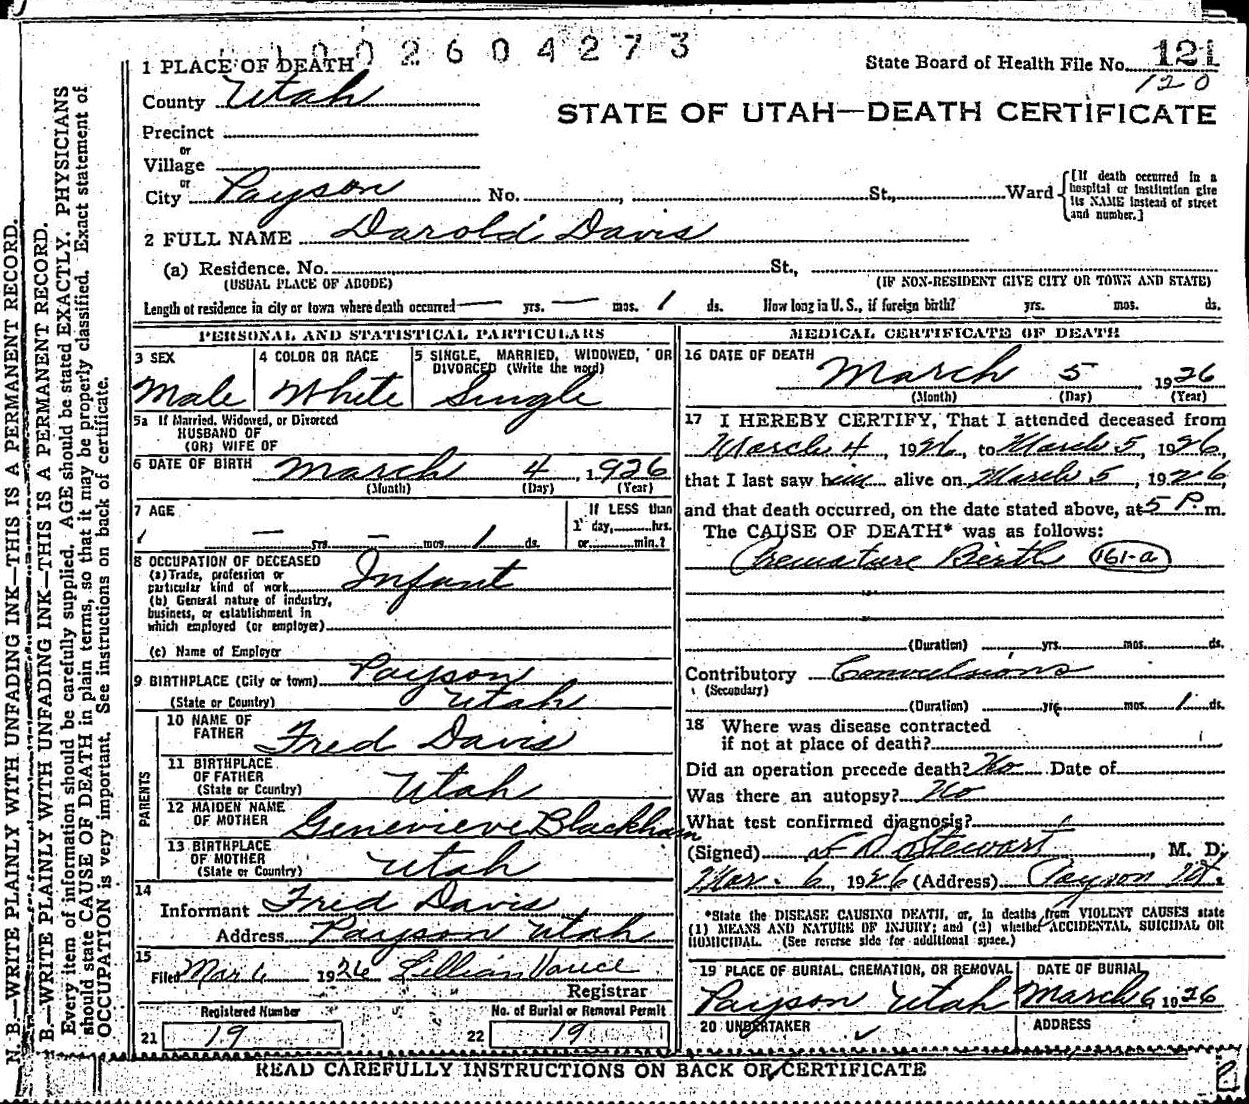 1002604273
1 PLACE OF DEATH
State Board of Health File No. 121
120
County Utah
STATE OF UTAH—DEATH CERTIFICATE
Precinct
or
Village
or
City Payson No. , St., Ward
[If death occurred in a hospital or institution give its NAME instead of street and number.]
2 FULL NAME Darold Davis
(a) Residence. No. St.,
(USUAL PLACE OF ABODE) (IF NON-RESIDENT GIVE CITY OR TOWN AND STATE)
Length of residence in city or town where death occurred — yrs. — mos. 1 ds. How long in U.S., if foreign birth? yrs. mos. ds.
PERSONAL AND STATISTICAL PARTICULARS
3 SEX
Male
4 COLOR OR RACE
White
5 SINGLE, MARRIED, WIDOWED, OR DIVORCED (Write the word)
Single
5a If Married, Widowed, or Divorced
HUSBAND OF
(OR) WIFE OF
6 DATE OF BIRTH March 4, 1926
(Month) (Day) (Year)
7 AGE
— yrs — mos. 1 ds.
If LESS than
1 day, hrs.
or min.?
8 OCCUPATION OF DECEASED
(a) Trade, profession or
particular kind of work Infant
(b) General nature of industry,
business, or establishment in
which employed (or employer)
(c) Name of Employer
9 BIRTHPLACE (City or town) Payson
(State or Country) Utah
PARENTS
10 NAME OF
FATHER Fred Davis
11 BIRTHPLACE
OF FATHER
(State or Country) Utah
12 MAIDEN NAME
OF MOTHER Genevieve Blackham
13 BIRTHPLACE
OF MOTHER
(State or Country) Utah
14
Informant Fred Davis
Address Payson Utah
15
Filed Mar 6 1926 Lillian Vance
Registrar
Registered Number
21 19
No. of Burial or Removal Permit
22 19
MEDICAL CERTIFICATE OF DEATH
16 DATE OF DEATH
March 5, 1926
(Month) (Day) (Year)
17 I HEREBY CERTIFY, That I attended deceased from
March 4, 1926, to March 5, 1926,
that I last saw him alive on March 5, 1926,
and that death occurred, on the date stated above, at 5 P. m.
The CAUSE OF DEATH* was as follows:
Premature Birth 161-a
(Duration) yrs. mos. ds.
Contributory Convulsions
(Secondary)
(Duration) yrs. mos. 1 ds.
18 Where was disease contracted
if not at place of death?
Did an operation precede death? No Date of
Was there an autopsy? No
What test confirmed diagnosis?
(Signed) L D Stewart, M. D.
Mar. 6, 1926 (Address) Payson Ut.
*State the DISEASE CAUSING DEATH, or, in deaths from VIOLENT CAUSES state
(1) MEANS AND NATURE OF INJURY; and (2) whether ACCIDENTAL, SUICIDAL OR
HOMICIDAL. (See reverse side for additional space.)
19 PLACE OF BURIAL, CREMATION, OR REMOVAL
Payson Utah
DATE OF BURIAL
March 6 1926
20 UNDERTAKER
ADDRESS
READ CAREFULLY INSTRUCTIONS ON BACK OF CERTIFICATE
N. B.—WRITE PLAINLY WITH UNFADING INK—THIS IS A PERMANENT RECORD.
B.—WRITE PLAINLY WITH UNFADING INK—THIS IS A PERMANENT RECORD.
Every item of information should be carefully supplied. AGE should be stated EXACTLY. PHYSICIANS
should state CAUSE OF DEATH in plain terms, so that it may be properly classified. Exact statement of
OCCUPATION is very important. See instructions on back of certificate.